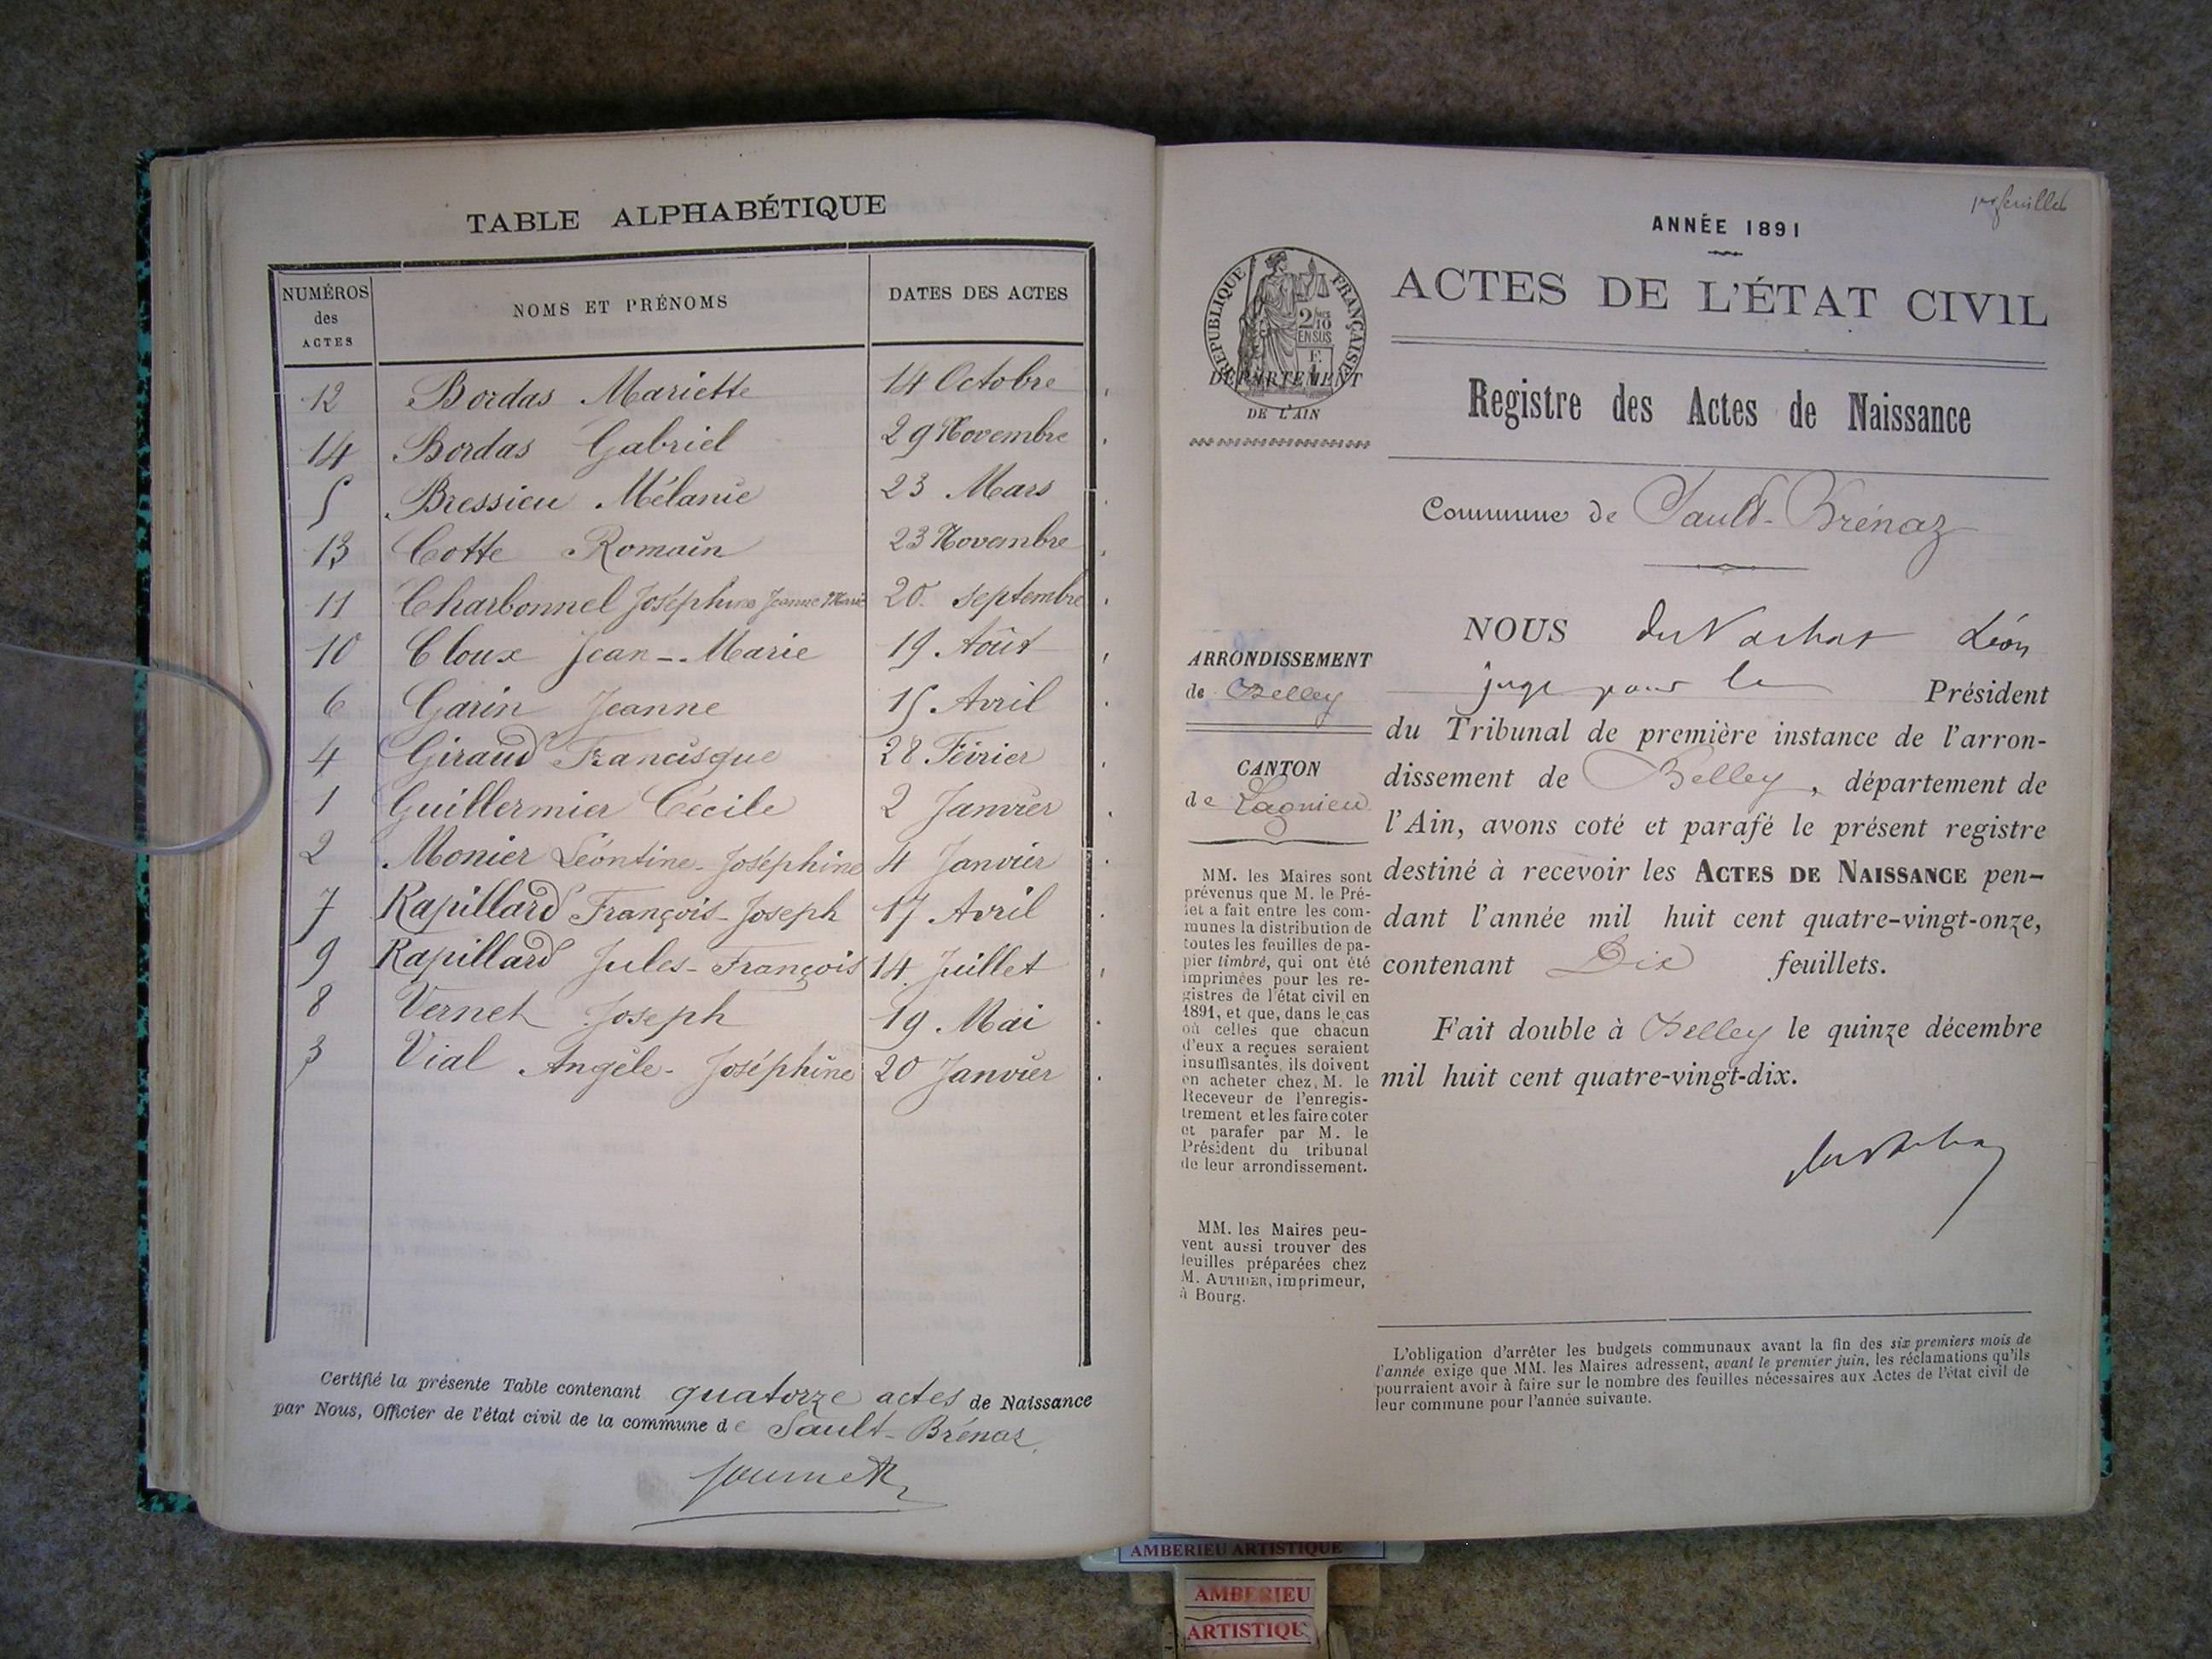 TABLE ALPHABÉTIQUE
NUMÉROS des ACTES
NOMS ET PRÉNOMS
DATES DES ACTES
12 Bordas Mariette 14 Octobre
14 Bordas Gabriel 29 Novembre
5 Bressieu Mélanie 23 Mars
13 Cotte Romain 23 Novembre
11 Charbonnel Joséphine Jeanne Marie 20 septembre
10 Cloux Jean-Marie 19 Août
6 Garin Jeanne 15 Avril
4 Giraud Francisque 28 Février
1 Guillermier Cécile 2 Janvier
2 Monier Léontine-Joséphine 4 Janvier
7 Rapillard François-Joseph 17 Avril
9 Rapillard Jules-François 14 Juillet
8 Vernet Joseph 19 Mai
3 Vial Angèle-Joséphine 20 Janvier
Certifié la présente Table contenant quatorze actes de Naissance
par Nous, Officier de l'état civil de la commune de Sault-Brénaz
1er feuillet
ANNÉE 1891
RÉPUBLIQUE FRANÇAISE
2/10
EN SUS
DÉPARTEMENT
DE L'AIN
ACTES DE L'ÉTAT CIVIL
Registre des Actes de Naissance
Commune de Sault-Brénaz
ARRONDISSEMENT
de Belley
CANTON
de Lagnieu
MM. les Maires sont
prévenus que M. le Pré-
fet a fait entre les com-
munes la distribution de
toutes les feuilles de pa-
pier timbré, qui ont été
imprimées pour les re-
gistres de l'état civil en
1891, et que, dans le cas
où celles que chacun
d'eux a reçues seraient
insuffisantes, ils doivent
en acheter chez M. le
Receveur de l'enregis-
trement et les faire coter
et parafer par M. le
Président du tribunal
de leur arrondissement.
MM. les Maires peu-
vent aussi trouver des
feuilles préparées chez
M. AUTHIER, imprimeur,
à Bourg.
NOUS Léon
juge pour le Président
du Tribunal de première instance de l'arron-
dissement de Belley, département de
l'Ain, avons coté et parafé le présent registre
destiné à recevoir les ACTES DE NAISSANCE pen-
dant l'année mil huit cent quatre-vingt-onze,
contenant Dix feuillets.
Fait double à Belley le quinze décembre
mil huit cent quatre-vingt-dix.
L'obligation d'arrêter les budgets communaux avant la fin des six premiers mois de
l'année exige que MM. les Maires adressent, avant le premier juin, les réclamations qu'ils
pourraient avoir à faire sur le nombre des feuilles nécessaires aux Actes de l'état civil de
leur commune pour l'année suivante.
AMBERIEU ARTISTIQUE
AMBERIEU
ARTISTIQU